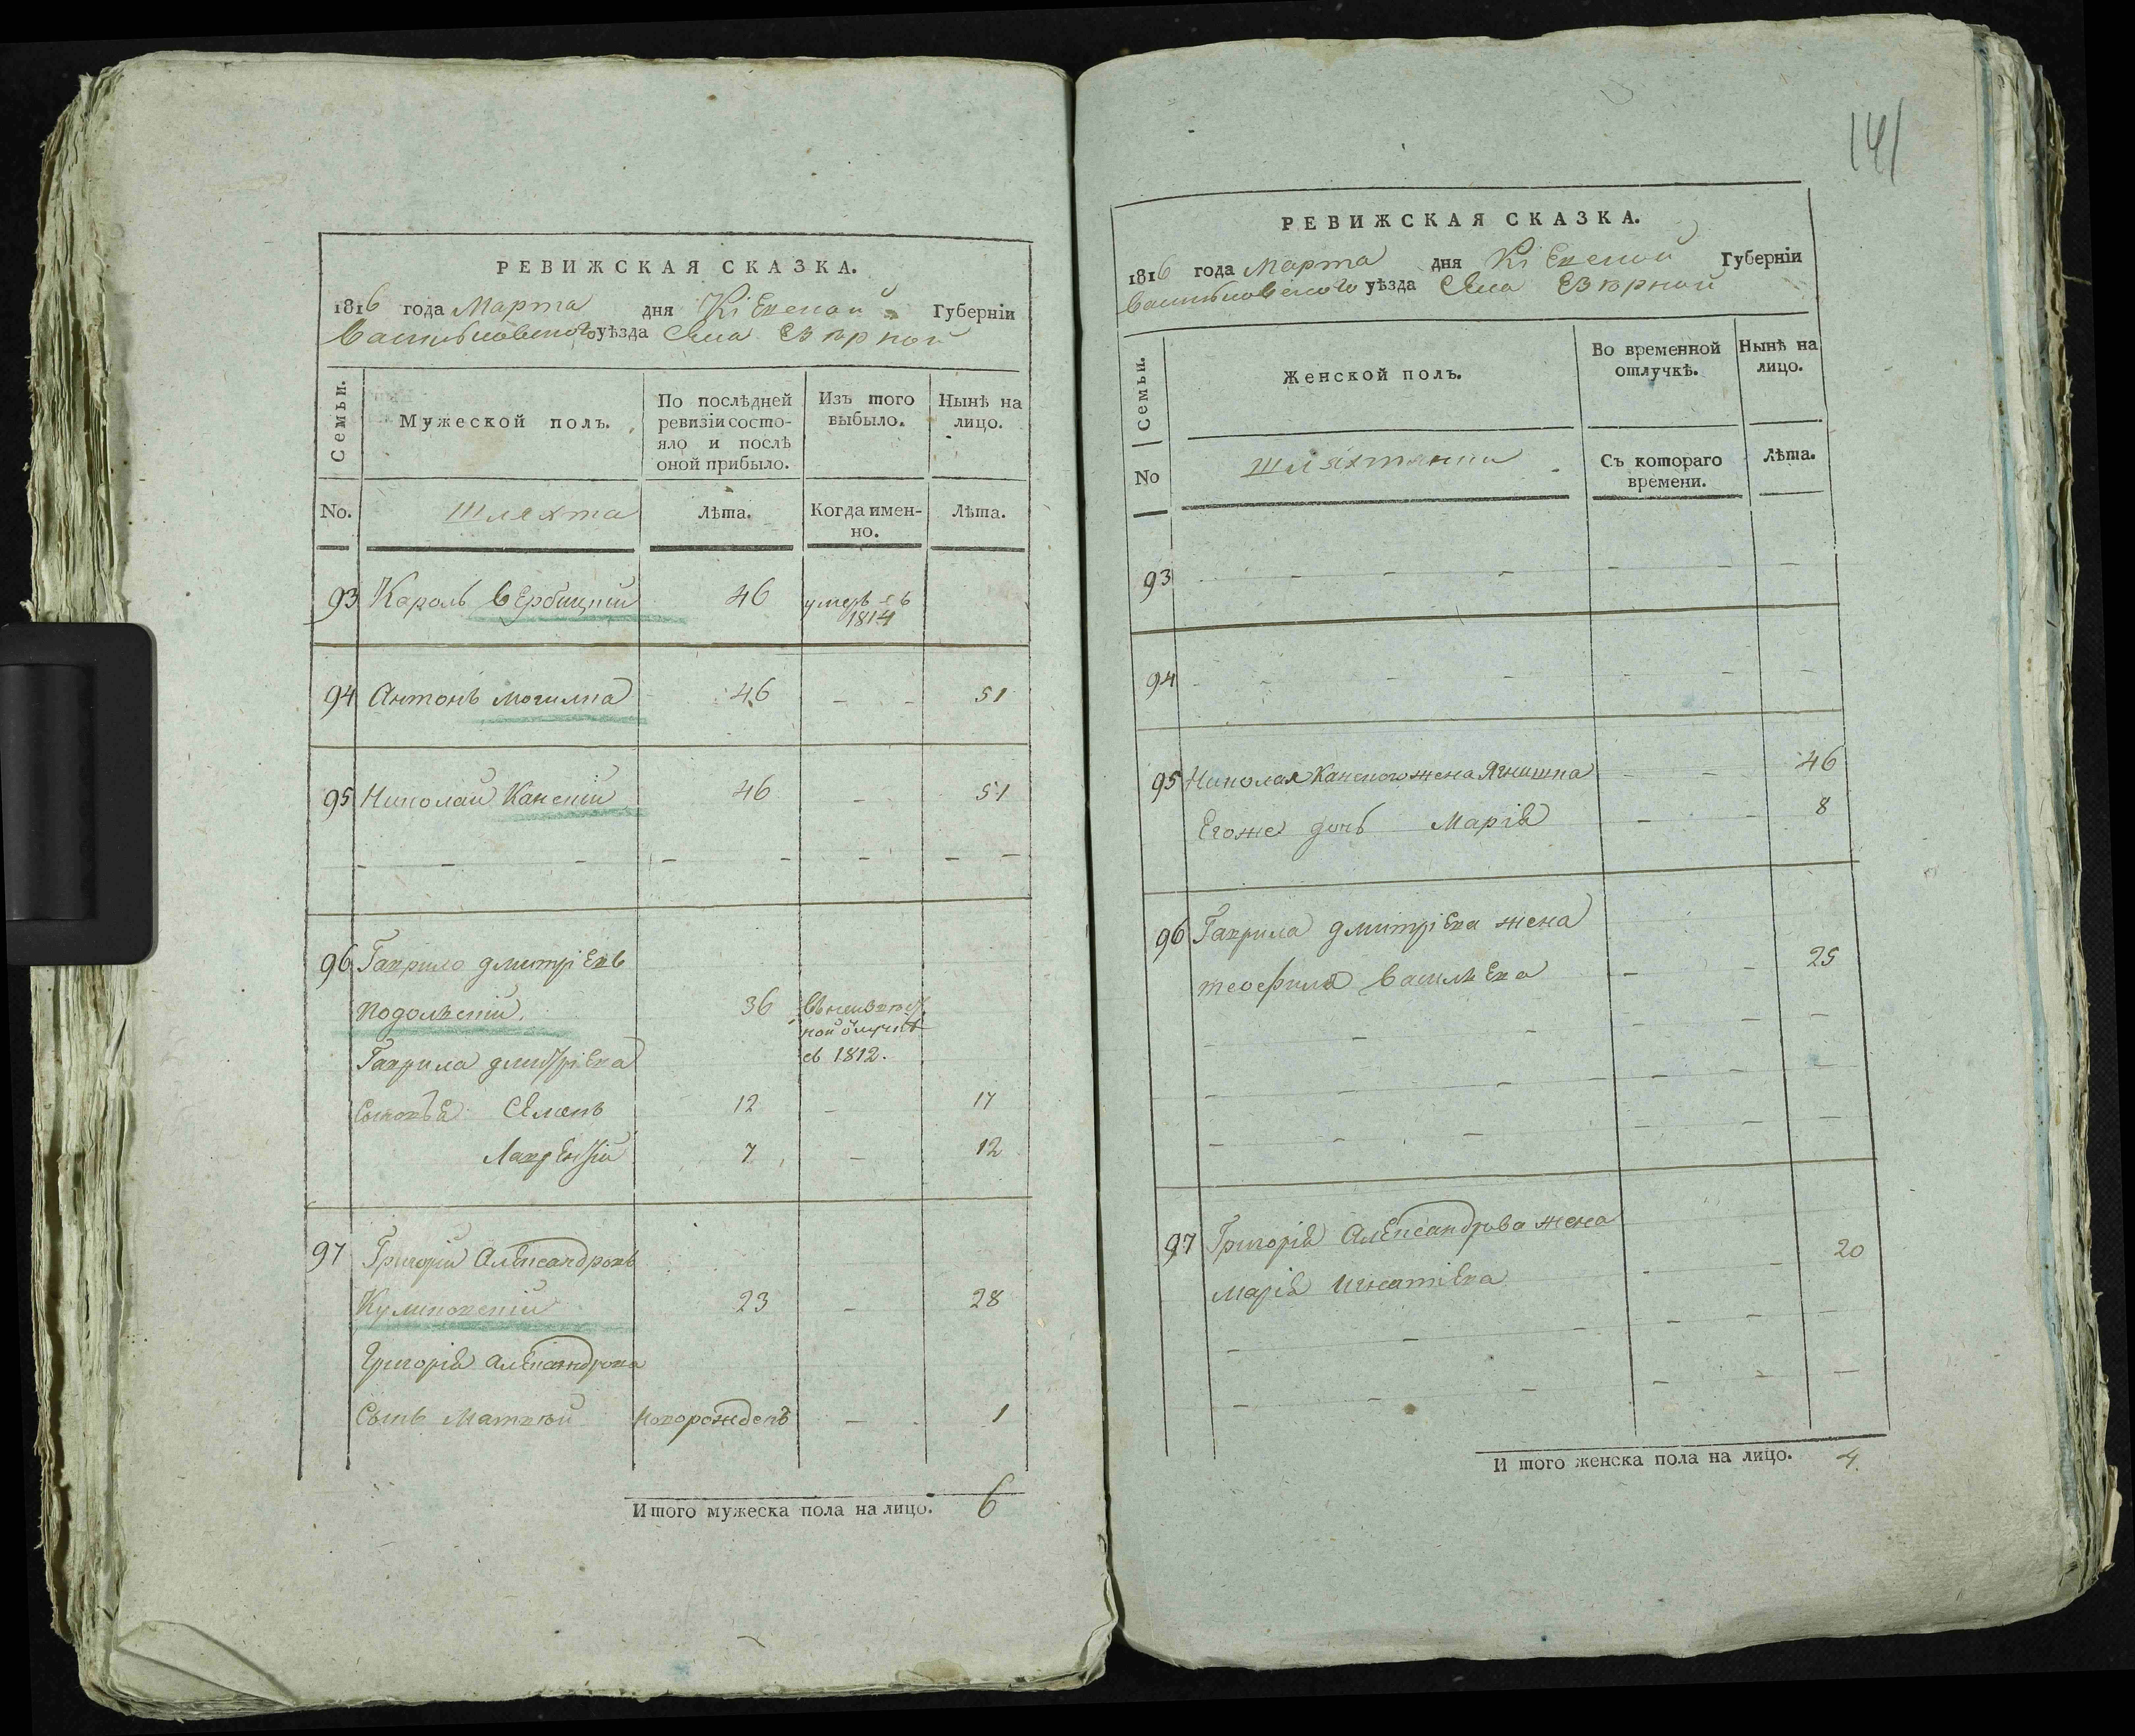 РЕВИЖСКАЯ СКАЗКА.
1816 года Марта дня Кіевской Губерніи
Васильковского уѣзда Села Езѣрной
Семьи.
Мужеской полъ.
По послѣдней
ревизіи состо-
яло и послѣ
оной прибыло.
Изъ того
выбыло.
Нынѣ на
лицо.
No.
Шляхта
Лѣта.
Когда имен-
но.
Лѣта.
93 Кароль Вербицкий 46 умеръ въ
1814
94 Антонъ Могилка 46 - - 51
95 Николай Канский 46 - 51
96 Гаврило Дмитріевъ
Подольский 36
Гаврила Дмитріева
съ 1812.
Сыновья Семенъ 12 - 17
Лаврентій 7 - 12
97 Григорий Александровъ
Куликовский 23 - 28
Григорія Александрова
Сынъ Матвѣй новорожденъ - 1
Итого мужеска пола на лицо. 6
141
РЕВИЖСКАЯ СКАЗКА.
1816 года Марта дня Кіевской Губерніи
Васильковского уѣзда Села Езѣрной
Семьи.
Женской полъ.
Во временной
отлучкѣ.
Нынѣ на
лицо.
No
Шляхтянки
Съ котораго
времени.
Лѣта.
93 - - - - - -
94 - - - - - -
95 Николая Канского жена Ягнишка - - 46
Егоже дочь Марія - - 8
96 Гаврила Дмитріева жена
Теофиля Васильева - - 25
97 Григорія Александрова жена
Марія Игнатіева - - 20
Итого женска пола на лицо. 4